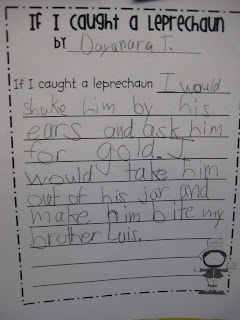 If I caught a leprechaun
BY Dayanara T.
If I caught a leprechaun I would
shake him by his
ears and ask him
for gold. I
would take him
out of his jar and
make him bite my
brother Luis.